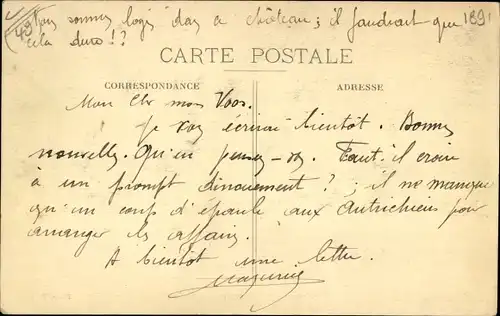 Nous sommes logés dans ce château ; il faudrait que
cela dure !?
CARTE POSTALE
CORRESPONDANCE
ADRESSE
Mon cher mon
Je vous écrirai bientôt. Bonnes
nouvelles. Qu'en pensez-vs. Faut-il croire
à un prompt dénouement ? ; il ne manque
qu'un coup d'épaule aux Autrichiens pour
arranger les affaires.
A bientôt une lettre.